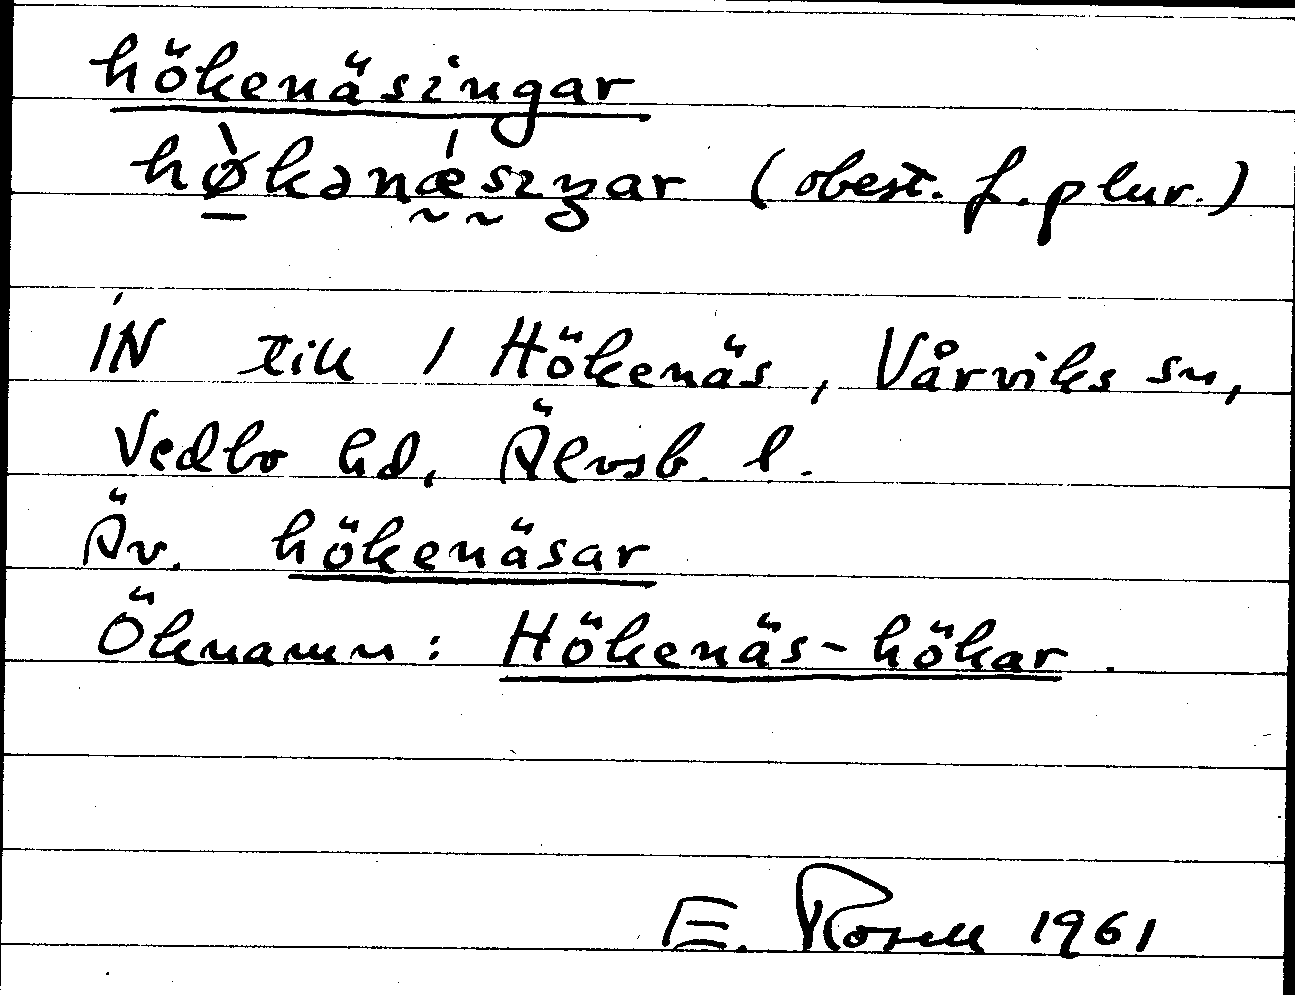 hökenäsingar
hø̀kənǽsɪŋar (obest. f. plur.)
IN till / Hökenäs, Vårviks sn,
Vedbo hd, Älvsb. l.
Äv. hökenäsar
Öknamn: Hökenäs-hökar.
E. Rosell 1961